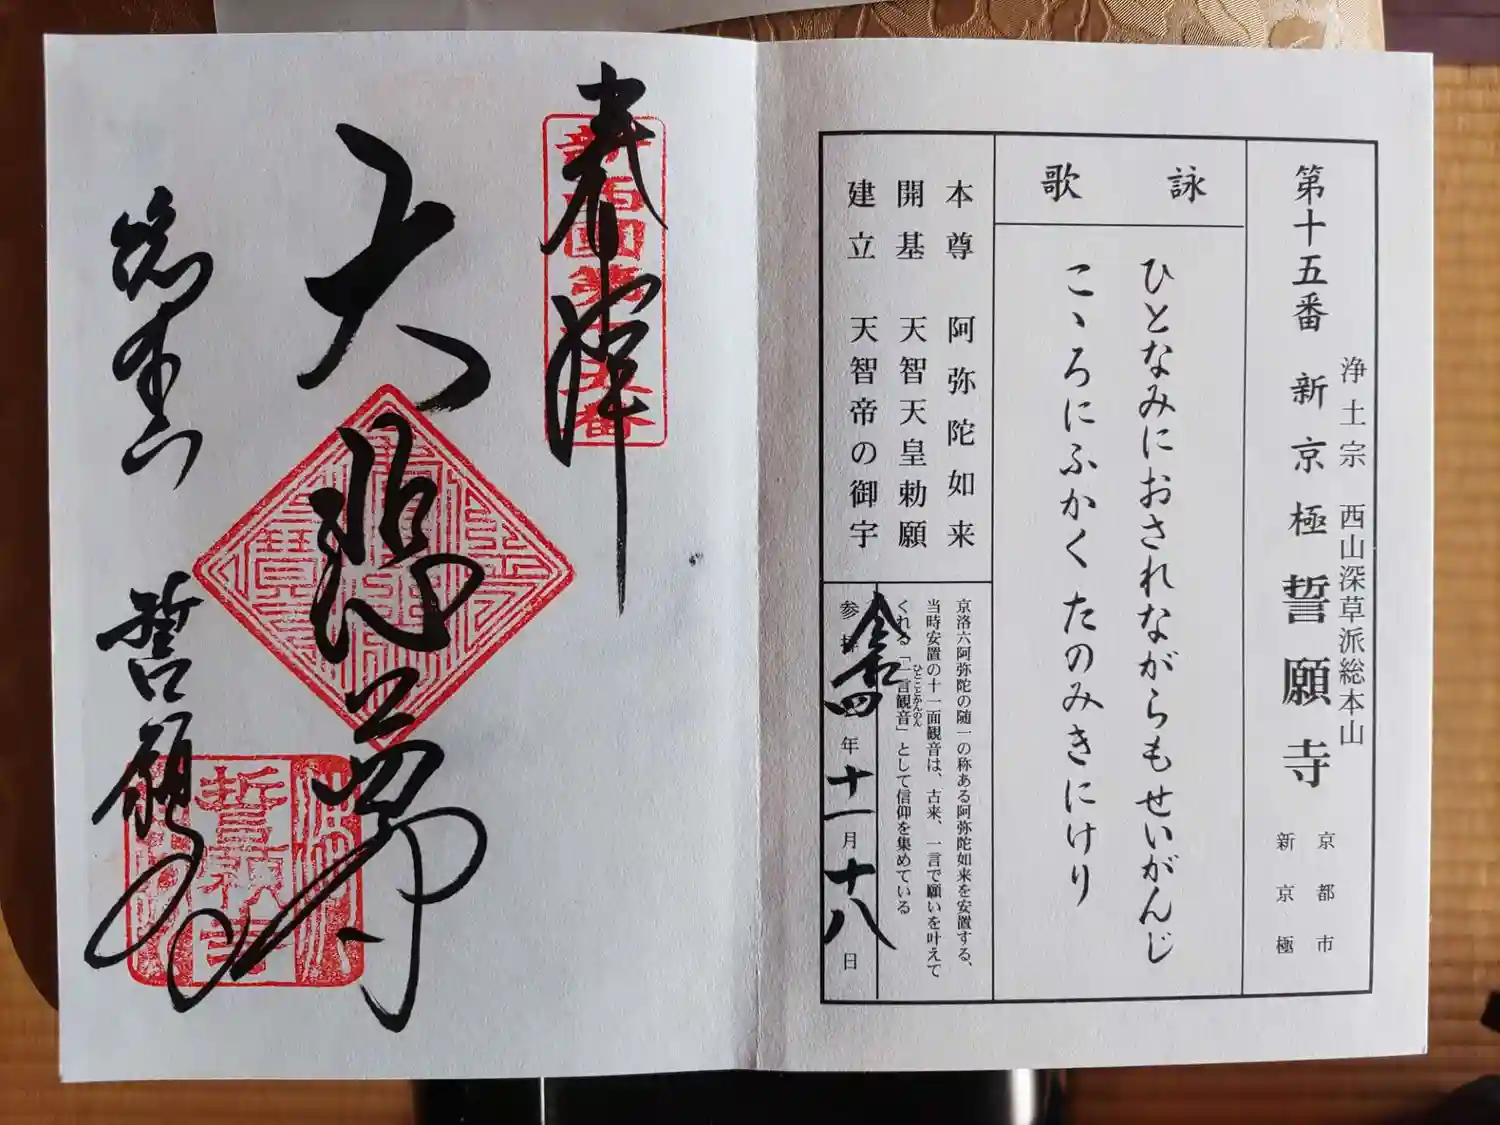 第十五番 新京極 誓願寺
浄土宗 西山深草派総本山
京都市
新京極
詠歌
ひとなみにおされながらもせいがんじ
こゝろにふかくたのみきにけり
本尊 阿弥陀如来
開基 天智天皇勅願
建立 天智帝の御宇
京洛六阿弥陀の随一の称ある阿弥陀如来を安置する、
当時安置の十一面観音は、古来、一言で願いを叶えて
くれる「一言観音」として信仰を集めている
ひとことかんのん
参拝 令和四年十一月十八日
奉拝
大悲尊
総本山 誓願寺
誓願寺